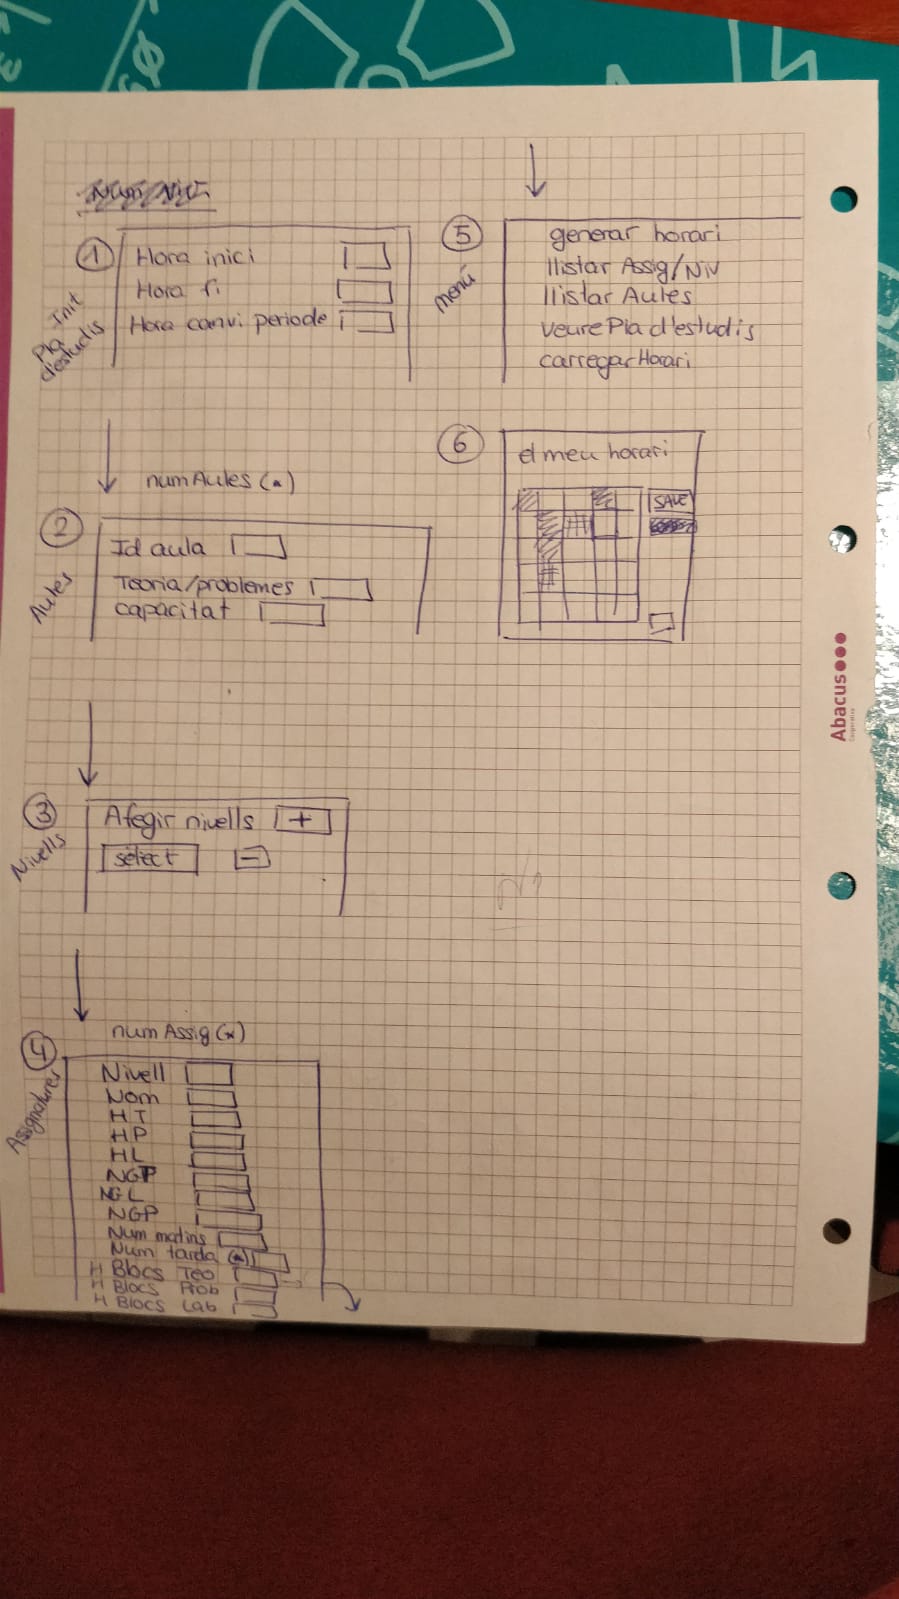 1
Init
Pla
d'estudis
Hora inici
Hora fi
Hora canvi periode
numAules (*)
2
Aules
Id aula
Teoria/problemes
capacitat
3
Nivells
Afegir nivells +
select -
numAssig (*)
4
Assignatures
Nivell
Nom
HT
HP
HL
NGT
NGL
NGP
Num matins
Num tarda (*)
H Blocs Teo
H Blocs Prob
H Blocs Lab
5
menú
generar horari
llistar Assig/Niv
llistar Aules
veure Pla d'estudis
carregar Horari
6
el meu horari
SAVE
Abacus